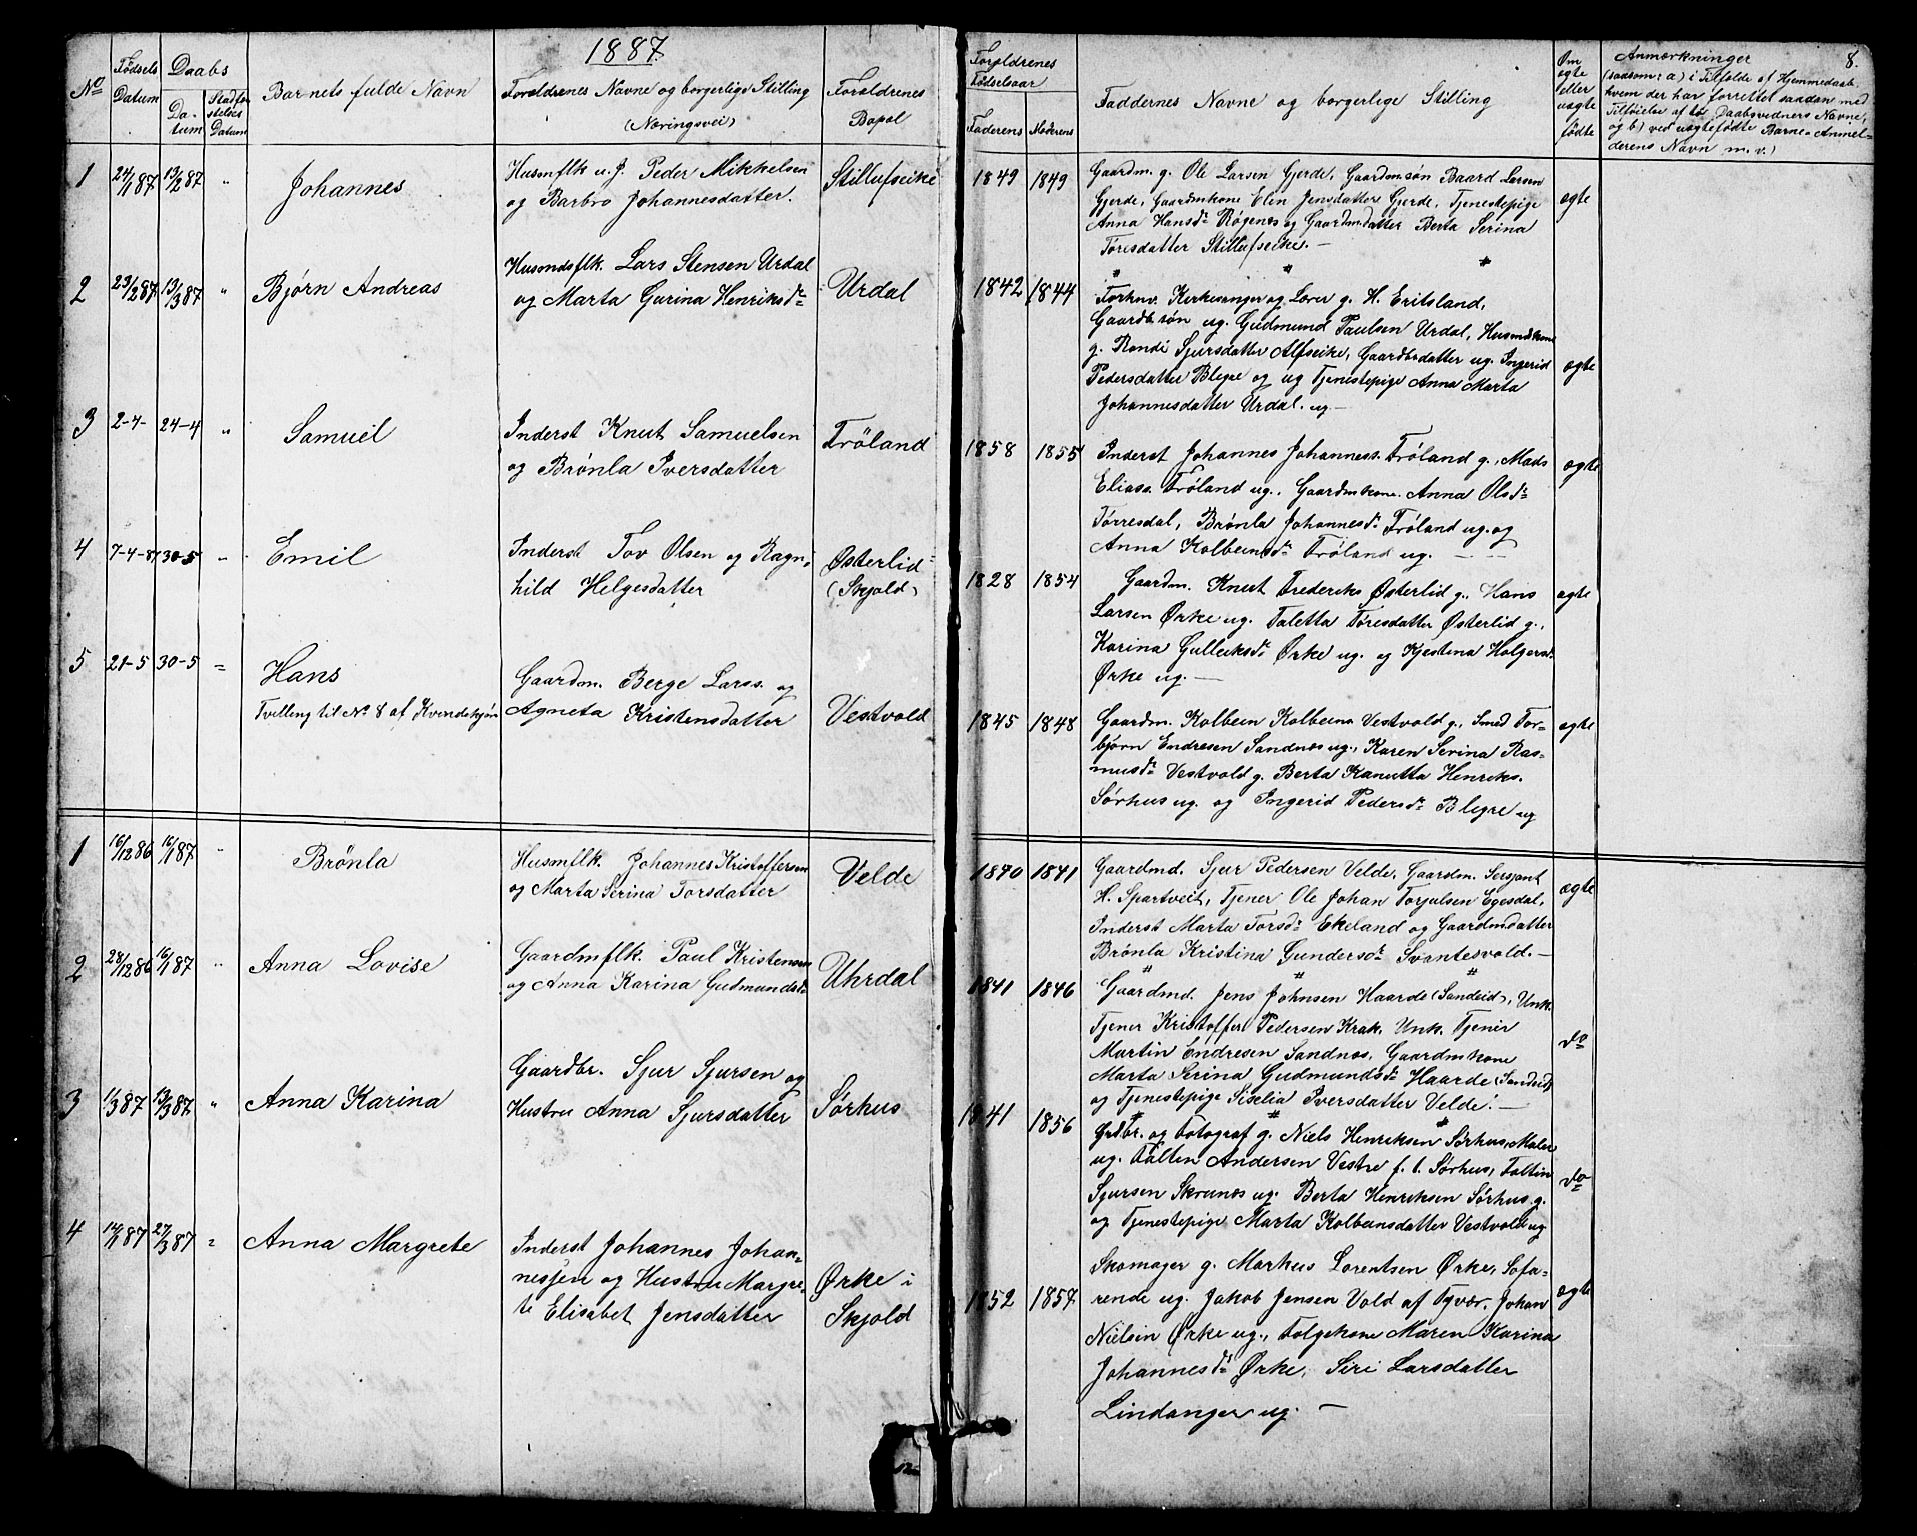 1887
8.
No
Fødsels Datum
Daabs
Datum
Stadfæstelses Datum
Barnets fulde Navn
Forældrenes Navne og borgerlige Stilling
(Næringsvei)
Forældrenes Bopæl
Forældrenes Fødselsaar
Faderens
Moderens
Faddernes Navne og borgerlige Stilling
Om ægte eller uægte fødte
Anmærkninger
(saasom: a) i Tilfælde af Hjemmedaab,
hvem der har forrettet saadan med
Tilføielse af to Daabsvidners Navne,
og b) ved uægtefødte Børn = Anmel-
derens Navn m. v.)
1 24/1 87 13/2 87 " Johannes
Husmflk u. J. Peder Mikkelsen
og Barbro Johannesdatter.
Stillufseike
1849 1849
Gaardm. g. Ole Larsen Gjerde, Gaardm.søn Baard Larsen
Gjerde, Gaardmkone Elin Jensdatter Gjerde, Tjenestepige
Anna Hansdr Røgenes og Gaardmdatter Berta Serina
Toresdatter Stillufseike. —
ægte
2 23/2 87 13/3 87 " Bjørn Andreas
Husmdsflk. Lars Stensen Urdal
og Marta Gurina Henriksdr
Urdal
1842 1844
Forhnv. Kirkesanger og Lærer g. H. Eritsland,
Gaardb.søn ug. Gudmund Paulsen Urdal, Husmdkone
g. Randi Sjursdatter Alfseike, Gaardbrdatter ug. Ingerid
Pedersdatter Blegre og ug Tjenestepige Anna Marta
Johannesdatter Urdal. ug —
ægte
3 2-4- 24-4 " Samuel
Inderst Knut Samuelsen
og Brønla Iversdatter
Frøland
1858 1855
Inderst Johannes Johanness. Frøland g., Mads
Eliass. Frøland ug., Gaardmkone. Anna Olsdr
Torresdal, Brønla Johannesdr Frøland ug. og
Anna Kolbeinsdr Frøland ug. —
ægte
4 7-4-87 30-5 " Emil
Inderst Tov Olsen og Ragn-
hild Helgesdatter
Østerlid
(Skjold)
1828 1854
Gaardm. Knut Frederiks Østerlid g., Hans
Larsen Ørke ug. Taletta Toresdatter Østerlid g.,
Karina Gulleiksdr Ørke ug. og Kjestina Holgersdr
Ørke ug. —
ægte
5 21-5 30-5 = Hans
Tvilling til No 8 af Kvindekjøn
Gaardm. Berge Larss. og
Agneta Kristensdatter
Vestvold
1845 1848
Gaardm. Kolbein Kolbeins Vestvold g., Smed Tor-
bjørn Endresen Sandnæs ug., Karen Serina Ras-
musdr Vestvold g. Berta Kanutta Henriks.
Sørhus ug. og Ingerid Pedersdr Blegre ug
ægte
1 16/12 86 16/1 87 " Brønla
Husmflk. Johannes Kristoffersen
og Marta Serina Torsdatter
Velde
1840 1841
Gaardmd. Sjur Pedersen Velde, Gaardm. Sersjant
H. Spartveit, Tjener Ole Johan Torjulsen Egesdal,
Inderst Marta Torsdr Ekeland og Gaardmdatter
Brønla Kristina Gundersdr Svantesvold. —
ægte
2 28/12 86 16/1 87 " Anna Lovise
Gaardmflk. Paul Kristensen
og Anna Karina Gudmundsdr
Uhrdal
1841 1846
Gaardmd. Jens Johnsen Haarde (Sandeid), Unk.
Tjener Kristoffer Pedersen Krak. Unk. Tjener
Martin Endresen Sandnæs, Gaardmkone
Marta Serina Gudmundsdr Haarde (Sandeid)
og Tjenestepige Siselia Iversdatter Velde. —
do
3 1/3 87 13/3 87 " Anna Karina
Gaardbr. Sjur Sjursen og
Hustru Anna Sjursdatter
Sørhus
1841 1856
Grdbr. og Fotograf g. Niels Henriksen Sørhus, Maler
ug. Falten Andersen Vestre f. t. Sørhus, Faltin
Sjursen Skrunes ug. Berta Henriksen Sørhus g.
og Tjenestepige Marta Kolbeinsdatter Vestvold ug
do
4 14/1 87 27/3 87 = Anna Margrete
Inderst Johannes Johan-
nessen og Hustru Margre-
te Elisabet Jensdatter
Ørke i
Skjold
1852 1857
Skomager g. Markus Lorentsen Ørke, Søfa-
rende ug. Jakob Jensen Vold af Tysvær. Johan
Nielsen Ørke ug., Følgekone Maren Karina
Johannesdr Ørke, Siri Larsdatter
Lindanger ug. —
ægte